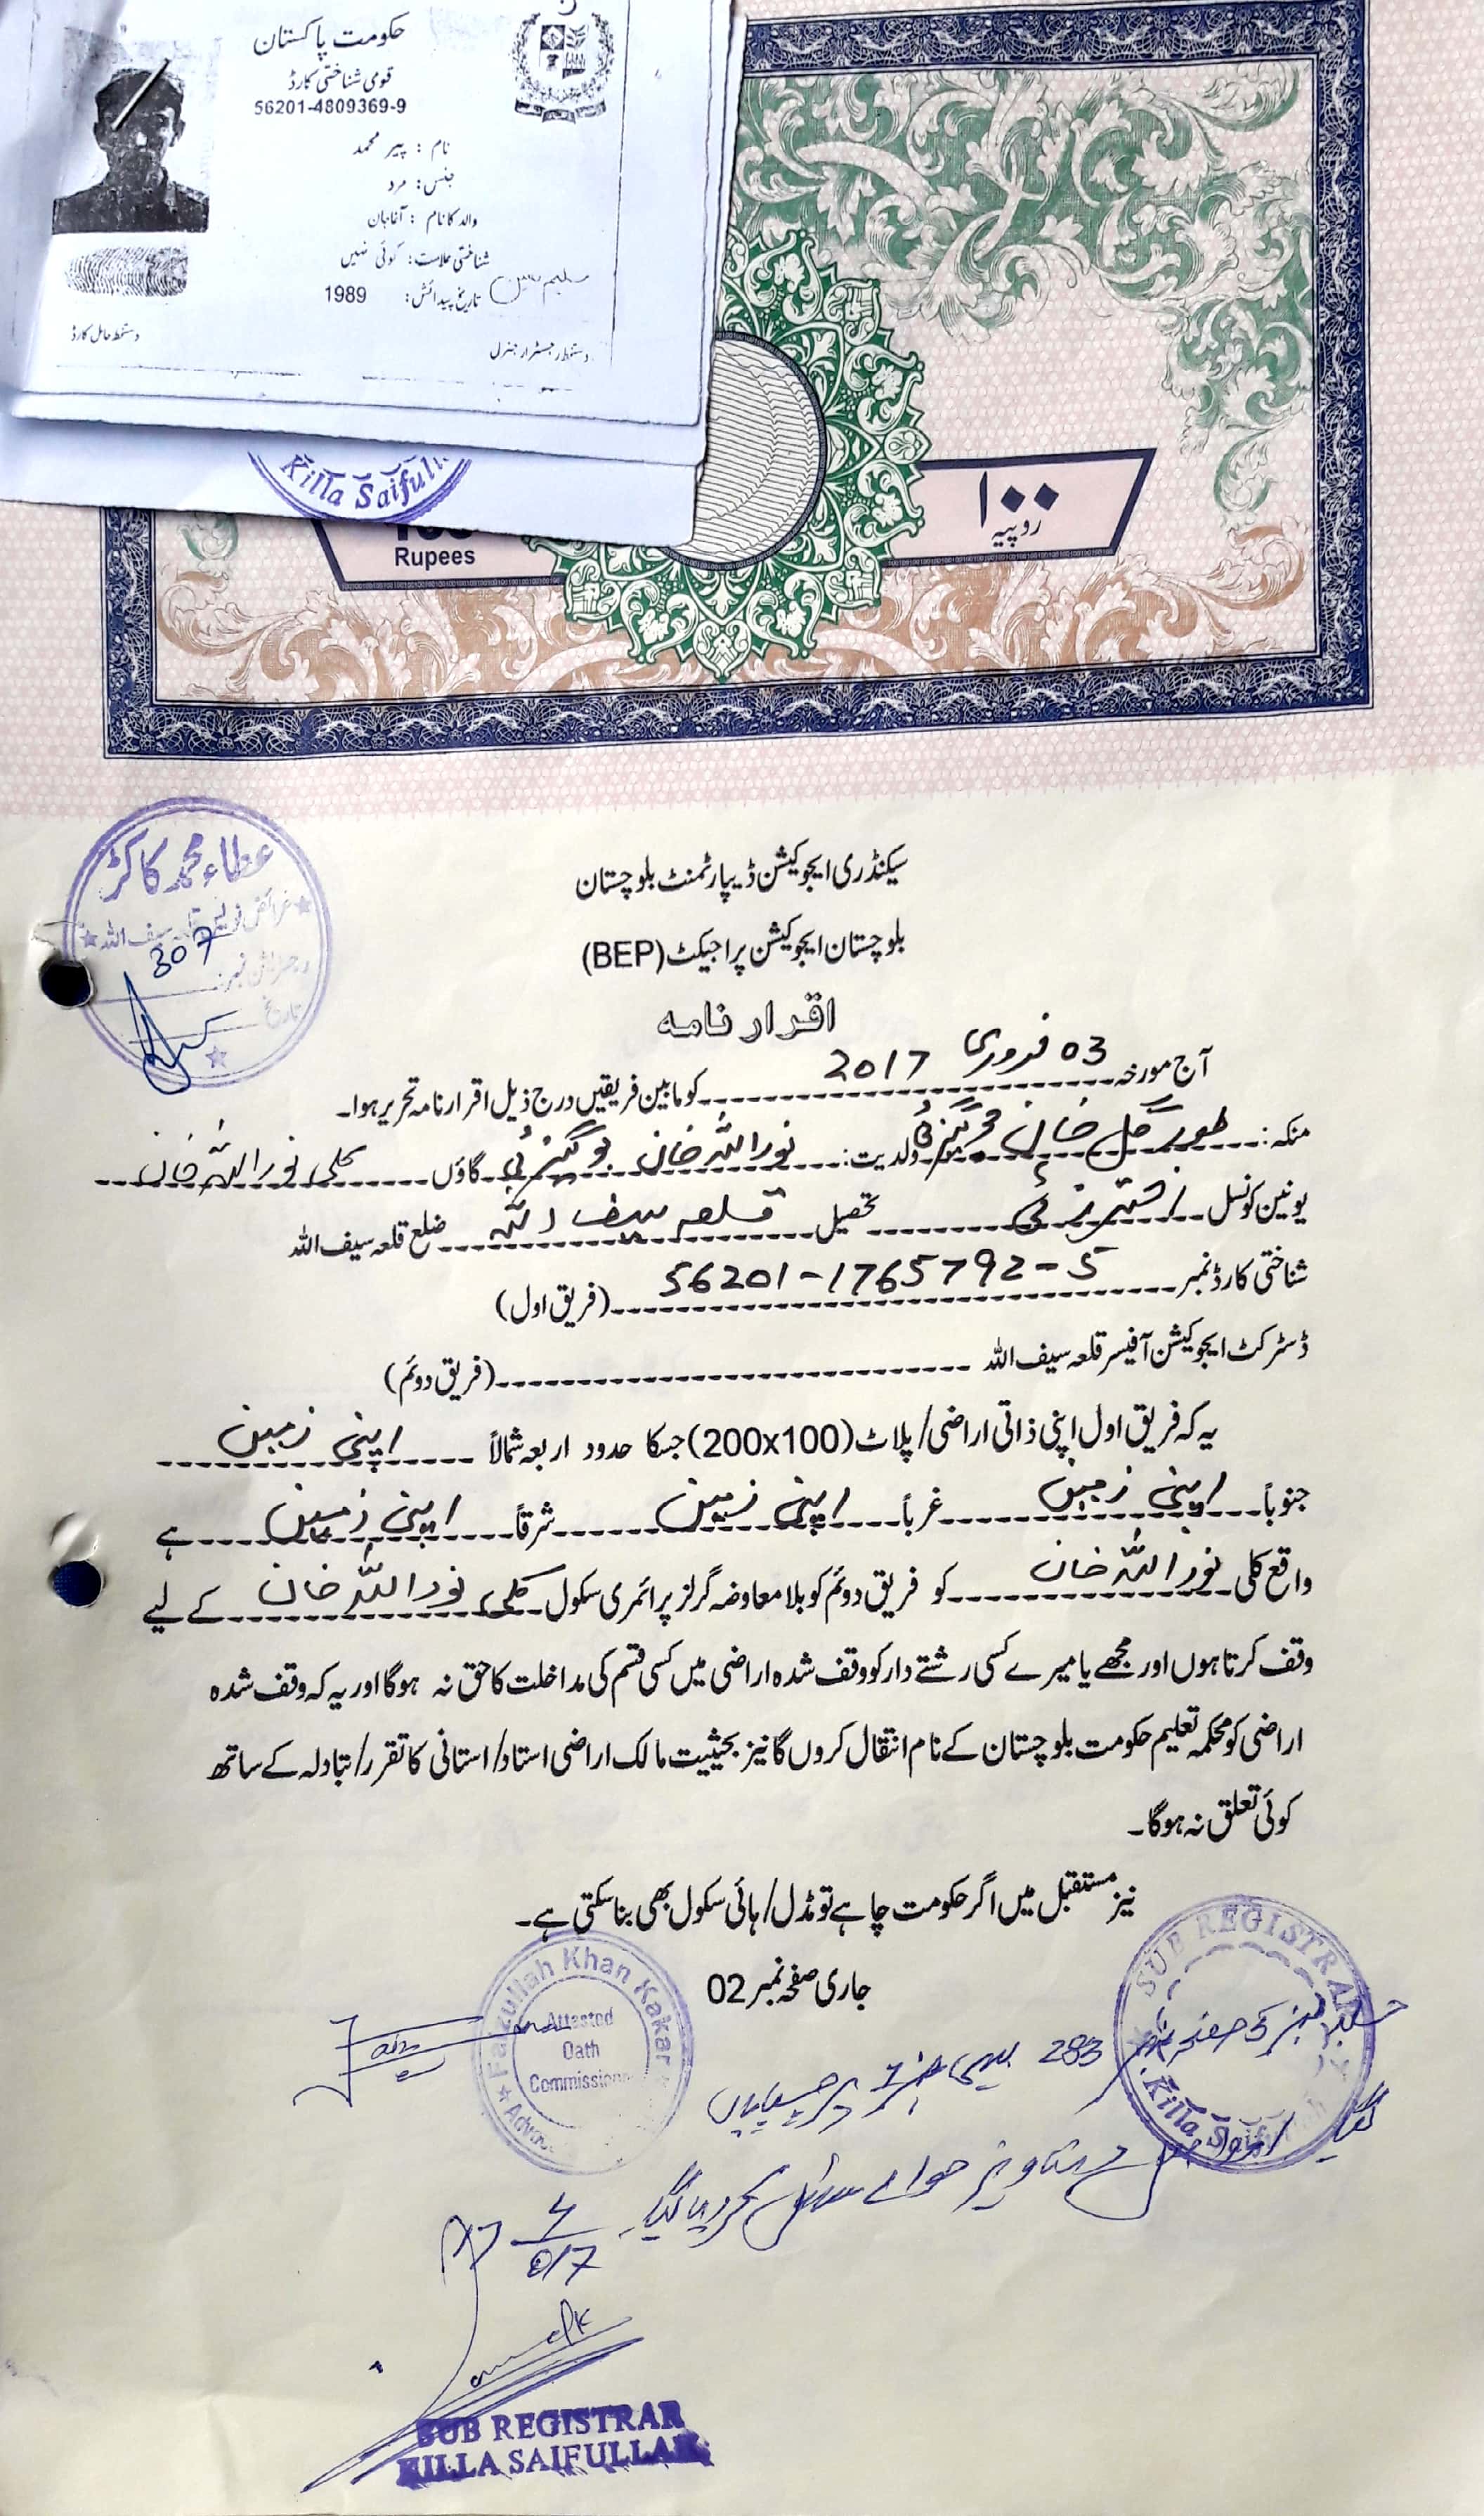 حکومت پاکستان
قومی شناختی کارڈ
56201-4809369-9
نام : پیر محمد
جنس: مرد
والد کا نام : آغا جان
شناختی علامت: کوئی نہیں
تاریخ پیدائش: 1989
دستخط حامل کارڈ
دستخط رجسٹرار جنرل
Killa Saifull
Rupees
۱۰۰
روپیہ
عطاء محمد کاکڑ
سیف اللہ
307
رجسٹریشن نمبر
تاریخ
سیکنڈری ایجوکیشن ڈیپارٹمنٹ بلوچستان
بلوچستان ایجوکیشن پراجیکٹ (BEP)
اقرار نامہ
آج مورخہ 03 فروری 2017 کو مابین فریقین درج ذیل اقرار نامہ تحریر ہوا۔
منکہ: طور گل خان جوگیزئی ولدیت: نوراللہ خان جوگیزئی گاؤں کلی نوراللہ خان
یونین کونسل تحصیل قلعہ سیف اللہ ضلع قلعہ سیف اللہ
شناختی کارڈ نمبر 56201-1765792-5 (فریق اول)
ڈسٹرکٹ ایجوکیشن آفیسر قلعہ سیف اللہ (فریق دوئم)
یہ کہ فریق اول اپنی ذاتی اراضی/پلاٹ (200x100) جسکا حدود اربعہ شمالاً اپنی زمین
جنوباً اپنی زمین غرباً اپنی زمین شرقاً اپنی زمین ہے
واقع کلی نوراللہ خان کو فریق دوئم کو بلا معاوضہ گرلز پرائمری سکول کلی نوراللہ خان کے لیے
وقف کرتا ہوں اور مجھے یا میرے کسی رشتے دار کو وقف شدہ اراضی میں کسی قسم کی مداخلت کا حق نہ ہوگا اور یہ کہ وقف شدہ
اراضی کو محکمہ تعلیم حکومت بلوچستان کے نام انتقال کروں گا نیز بحیثیت مالک اراضی استاد/استانی کا تقرر/تبادلہ کے ساتھ
کوئی تعلق نہ ہوگا۔
نیز مستقبل میں اگر حکومت چاہے تو مڈل/ہائی سکول بھی بنا سکتی ہے۔
جاری صفحہ نمبر 02
Faizullah Khan Kakar
Attested
Oath
Commission
Advoc
SUB REGISTRAR
Killa Saifullah
283
دستاویز حوالے سائل کر دیا گیا۔
SUB REGISTRAR
KILLA SAIFULLAH